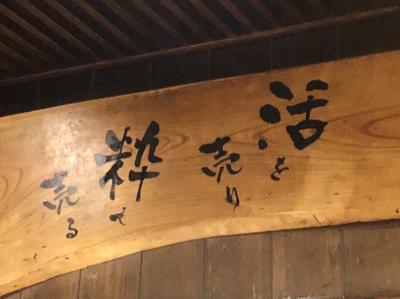 活を
売り
粋で
売る